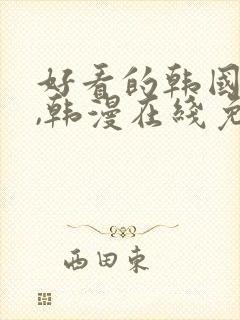 好看的韩国
,韩漫在线免
西田東